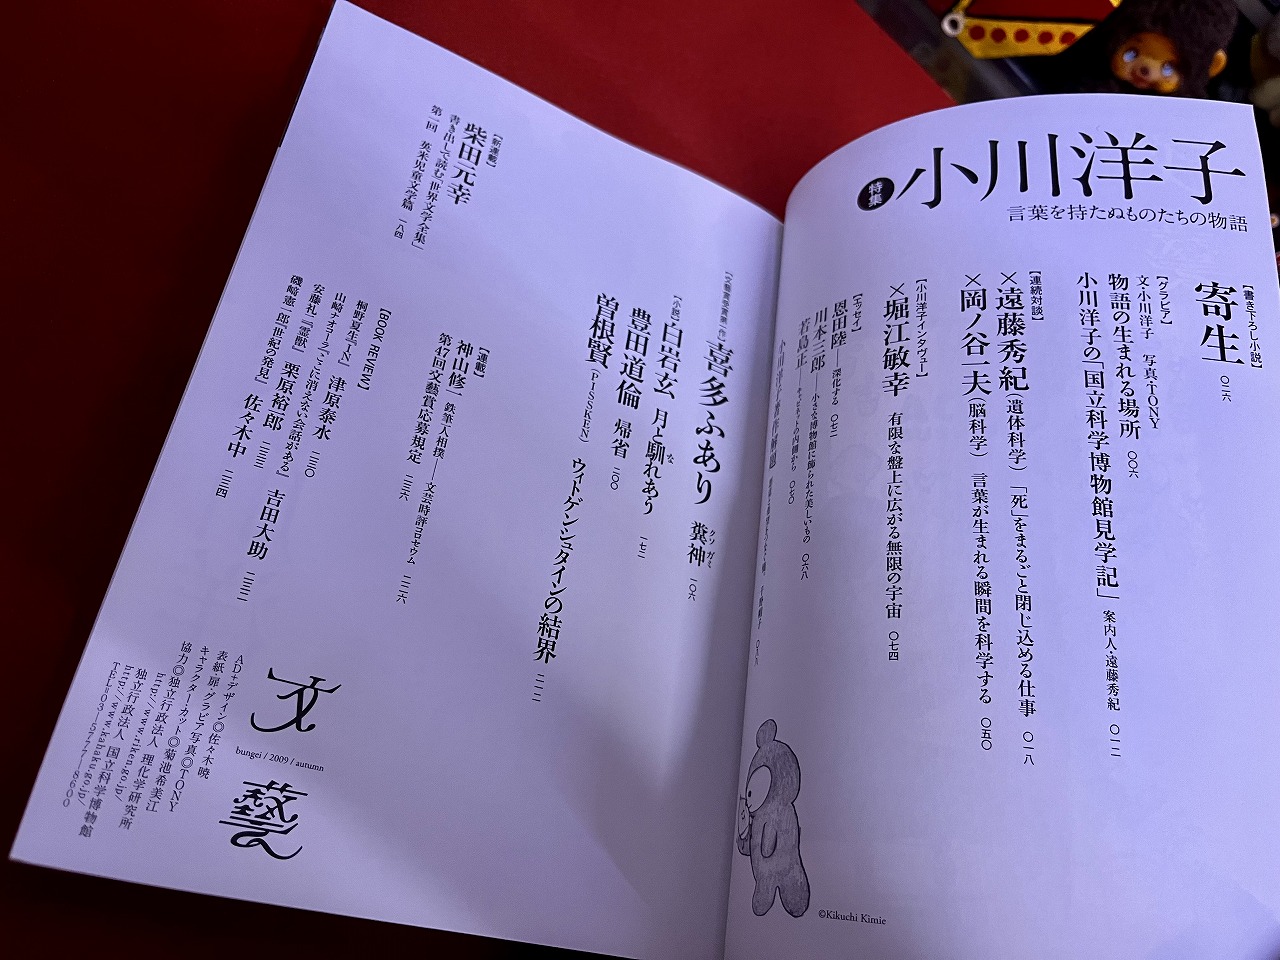 特集
小川洋子
言葉を持たぬものたちの物語
【書き下ろし小説】
寄生 〇二六
【グラビア】
文・小川洋子 写真・TONY
物語の生まれる場所 〇〇六
小川洋子の「国立科学博物館見学記」 案内人・遠藤秀紀 〇一二
【連続対談】
×遠藤秀紀(遺体科学) 「死」をまるごと閉じ込める仕事 〇一八
×岡ノ谷一夫(脳科学) 言葉が生まれる瞬間を科学する 〇五〇
【小川洋子インタヴュー】
×堀江敏幸 有限な盤上に広がる無限の宇宙 〇七四
【エッセイ】
恩田陸——深化する 〇七二
川本三郎——小さな博物館に飾られた美しいもの 〇六八
若島正——キャビネットの内側から 〇七〇
小川洋子著作解題
©Kikuchi Kimie
【文藝賞受賞第一作】
喜多ふあり 糞神 一〇六
クソ ガミ
【小説】
白岩玄 月と馴れあう 一七二
な
豊田道倫 帰省 二〇〇
曽根賢(PISSKEN) ウィトゲンシュタインの結界 二一二
【新連載】
柴田元幸
書き出しで読む「世界文学全集」
第一回 英米児童文学篇 一八四
【連載】
神山修一 鉄筆一人相撲——文芸時評コロセウム 二二六
第47回文藝賞応募規定 二三六
【BOOK REVIEW】
桐野夏生『IN』 津原泰水 二三〇
山崎ナオコーラ『ここに消えない会話がある』 吉田大助 二三二
安藤礼二『霊獣』 栗原裕一郎 二三三
磯﨑憲一郎『世紀の発見』 佐々木中 二三四
文藝
bungei / 2009 / autumn
AD+デザイン◎佐々木暁
表紙・扉・グラビア写真◎TONY
キャラクター・カット◎菊池希美江
協力◎独立行政法人 理化学研究所
http://www.riken.go.jp/
独立行政法人 国立科学博物館
http://www.kahaku.go.jp/
TEL=03—5777—8600